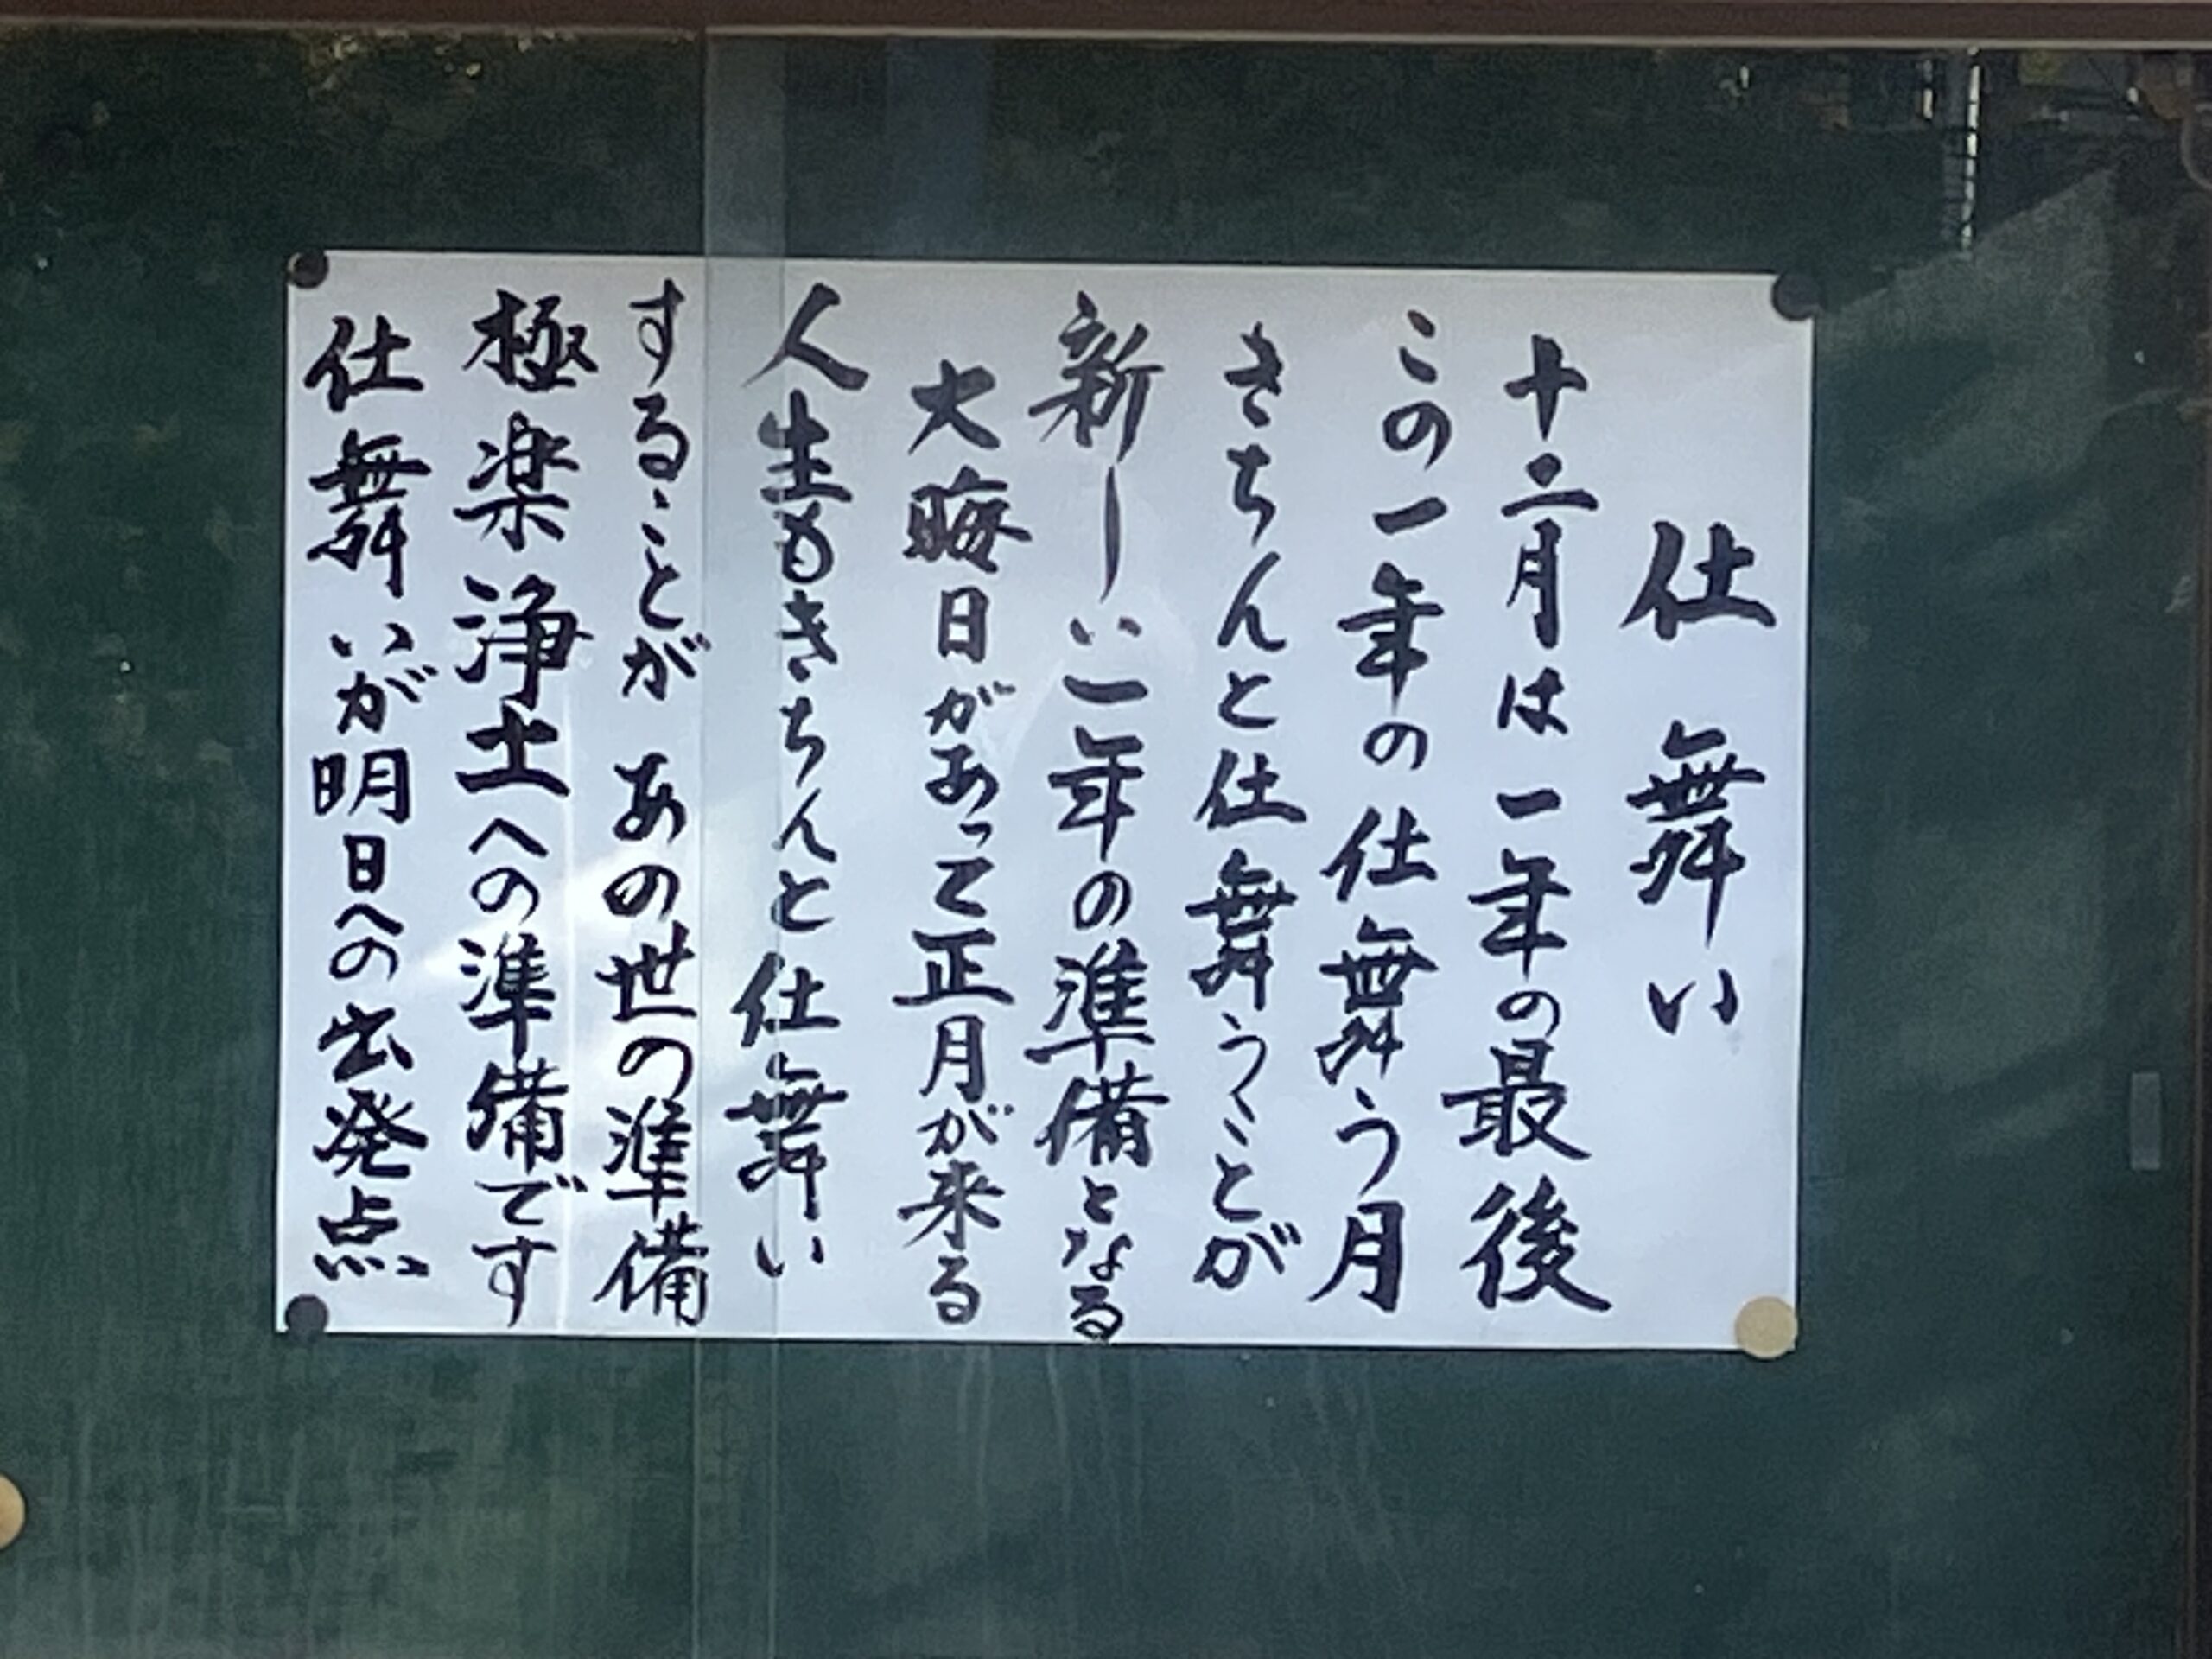 仕舞い
十二月は一年の最後
この一年の仕舞う月
きちんと仕舞うことが
新しい一年の準備となる
大晦日があって正月が来る
人生もきちんと仕舞い
することが あの世の準備
極楽浄土への準備です
仕舞いが明日への出発点